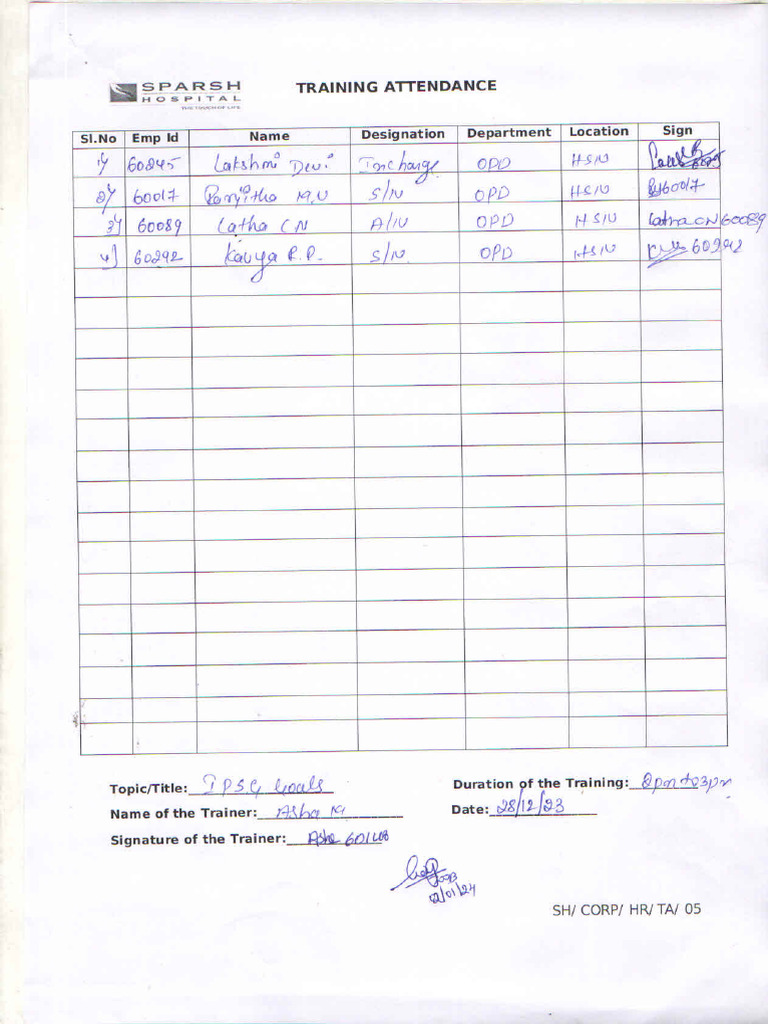 SPARSH
HOSPITAL
THE TOUCH OF LIFE
TRAINING ATTENDANCE
Sl.No Emp Id Name Designation Department Location Sign
1) 60245 Lakshmi Devi Incharge OPD HSN
2) 60017 Ranjitha M.U S/N OPD HSN 60017
3) 60089 Latha C N A/N OPD HSN Latha CN 60089
4) 60292 Kavya R.P. S/N OPD HSN 60292
Topic/Title: IPSG Goals Duration of the Training: 2pm to 3pm
Name of the Trainer: Asha M Date: 28/12/23
Signature of the Trainer: Asha
02/01/24
SH/ CORP/ HR/ TA/ 05